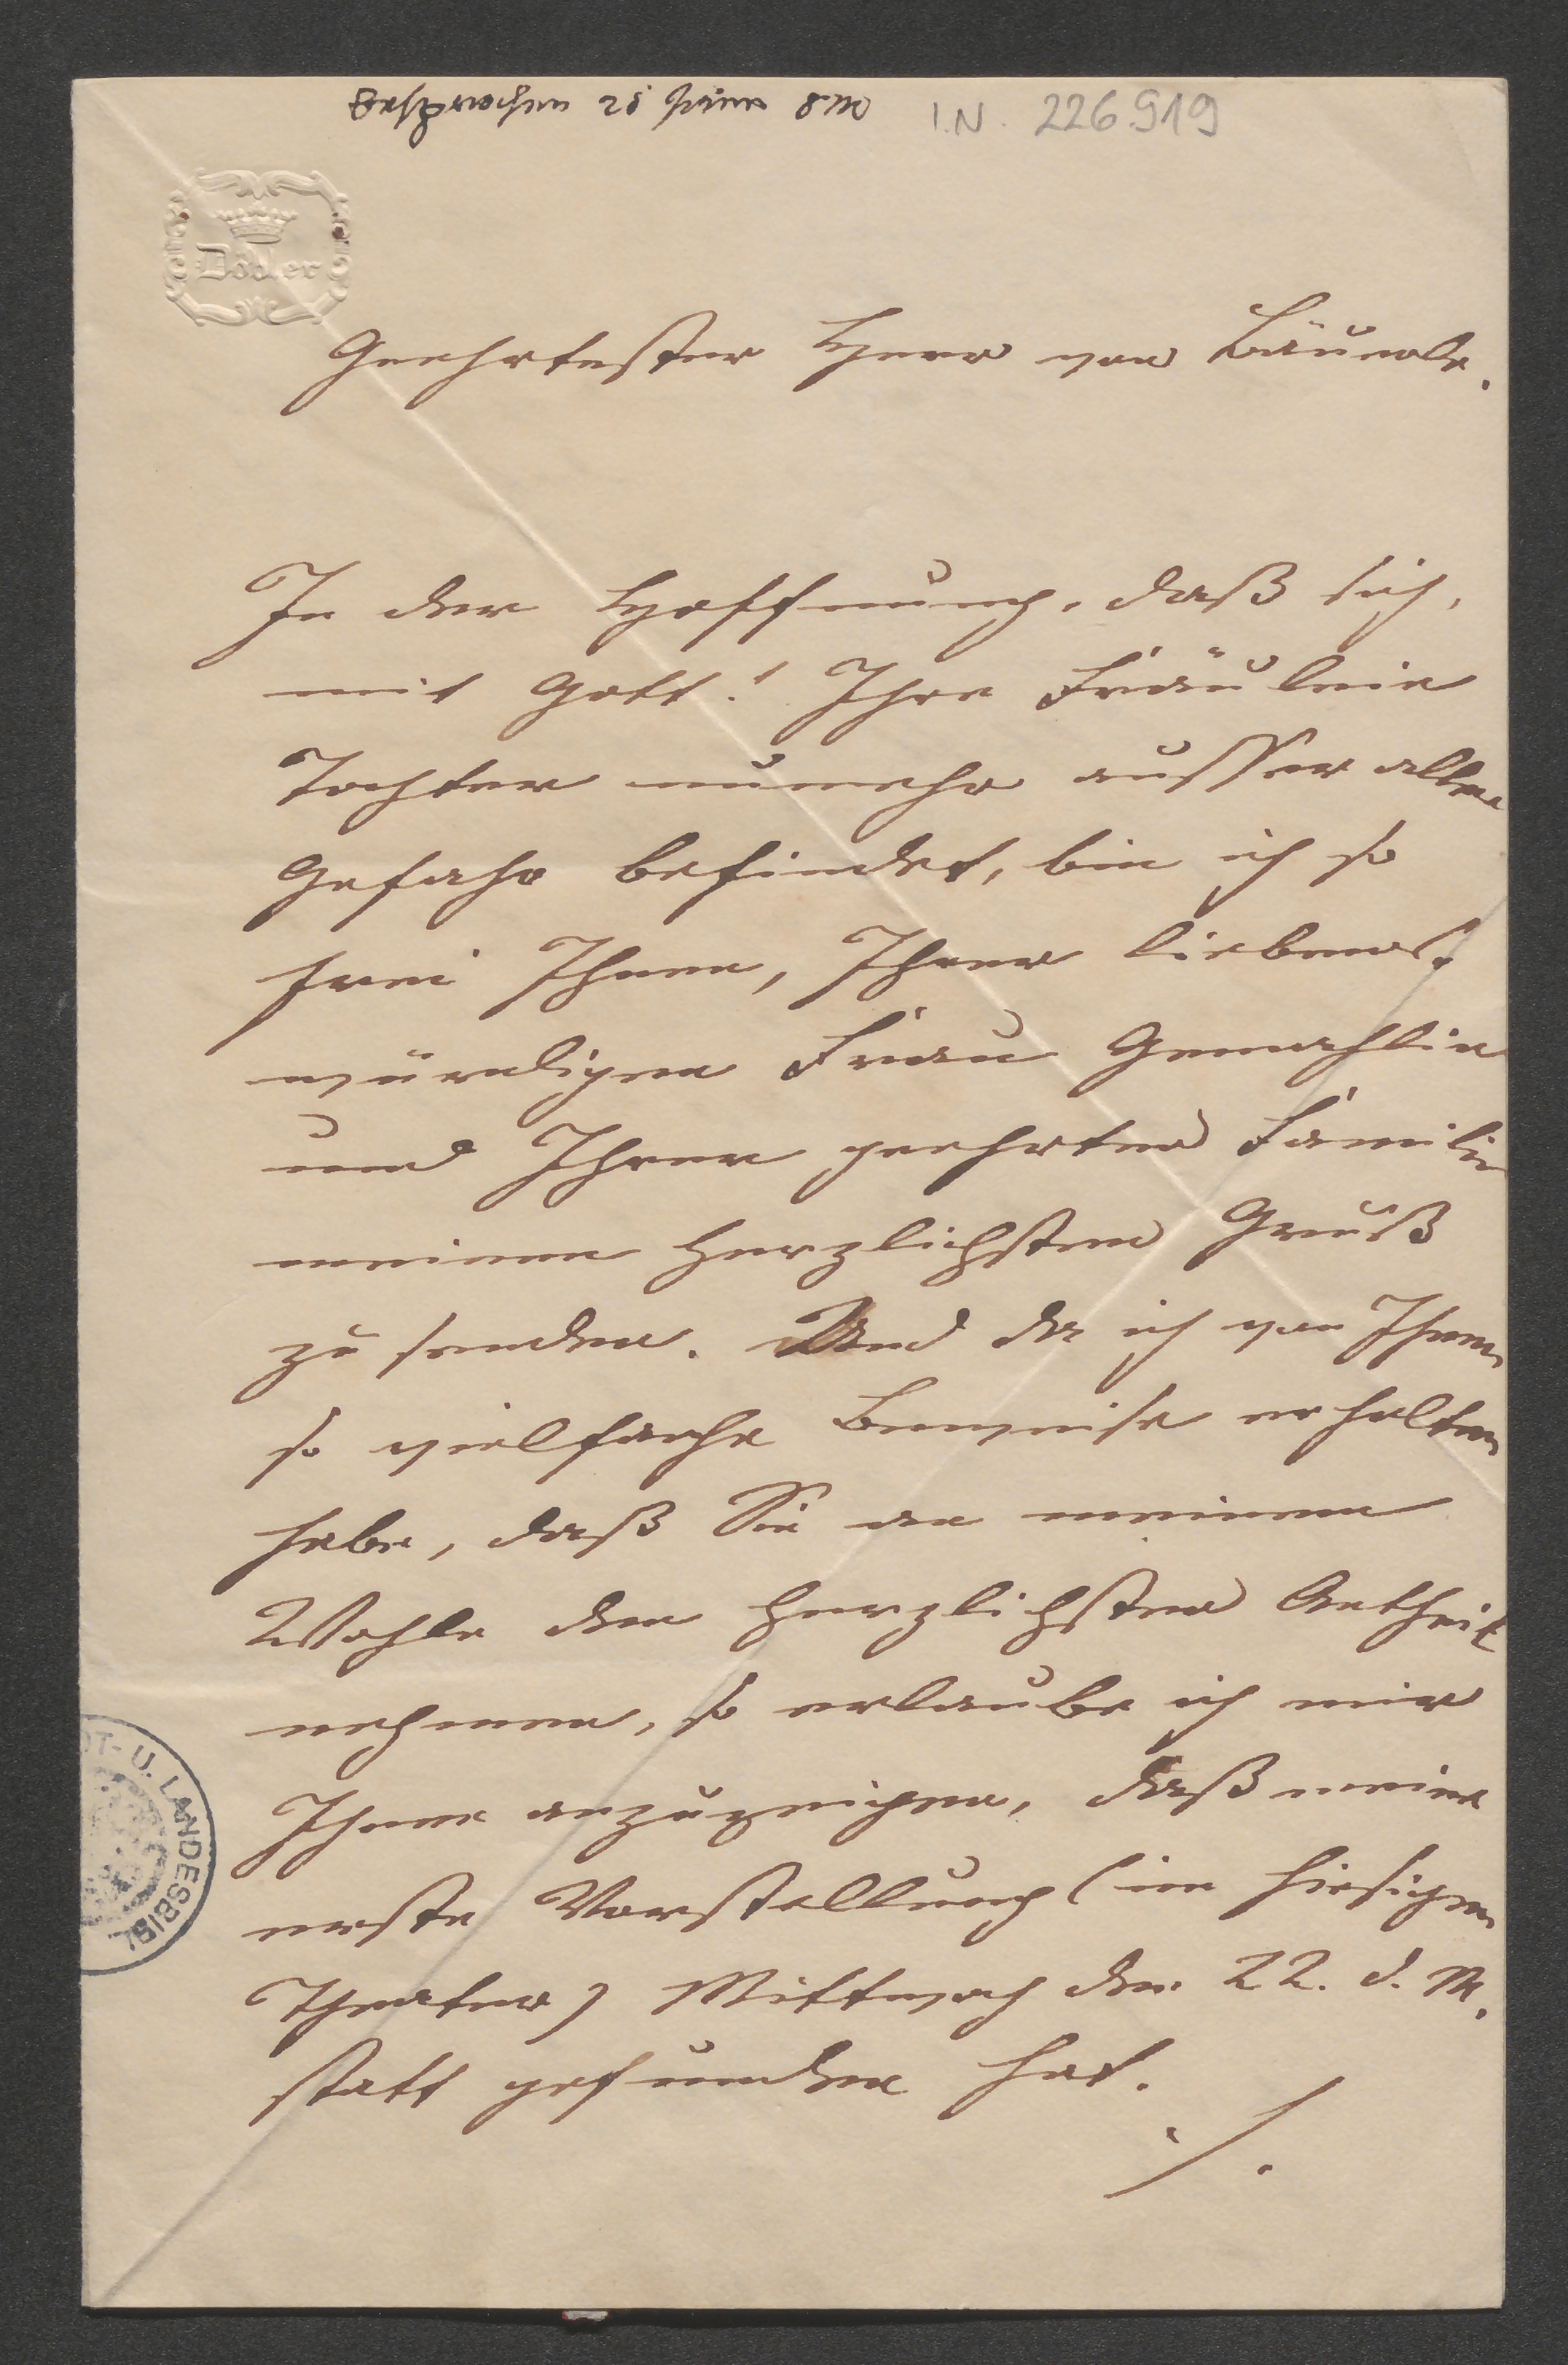 Besprochen 28 Juni 8 M
I.N. 226.919
Döbler
Geehrtester Herr von Bäuerle.
In der Hoffnung, daß sich,
mit Gott! Ihre Fräulein
Tochter nunmehr ausser aller
Gefahr befindet, bin ich so
frei Ihnen, Ihrer liebens-
würdigen Frau Gemahlin
und Ihrer geehrten Familie
meinen herzlichsten Gruß
zu senden. Und da ich von Ihnen
so vielfache Beweise erhalten
habe, daß Sie an meinem
Wohle den herzlichsten Antheil
nehmen, so erlaube ich mir
Ihnen anzuzeigen, daß meine
erste Vorstellung (im hiesigen
Theater) Mittwoch den 22. d. M.
statt gefunden hat.
./.
DT- U. LANDESBIBL.